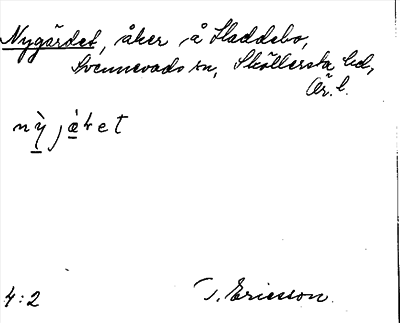 Nygärdet, åker å Haddebo,
Svennevads sn, Sköllersta hd,
Ör. l.
nỳ jæ̀ʈet
4:2 T. Ericsson.